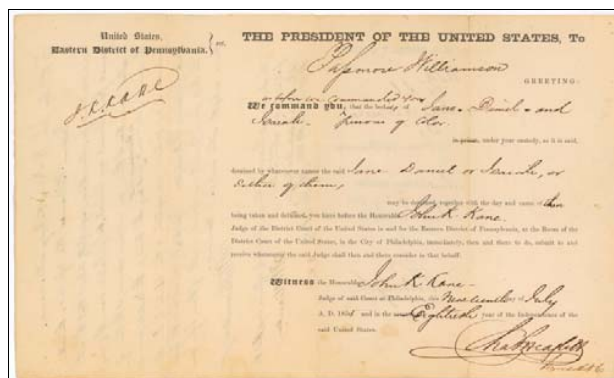 United States,
Eastern District of Pennsylvania. } sct.
J. K. KANE
THE PRESIDENT OF THE UNITED STATES, To
Passmore Williamson
GREETING:
as before we commanded you
We command you, that the bodies of Jane, Daniel and
Isaiah. Persons of Color.
in prison, under your custody, as it is said,
detained by whatsoever names the said Jane Daniel or Isaiah, or
either of them,
may be detained, together with the day and cause of their
being taken and detained, you have before the Honorable John K Kane.
Judge of the District Court of the United States in and for the Eastern District of Pennsylvania, at the Room of the
District Court of the United States, in the City of Philadelphia, immediately, then and there to do, submit to and
receive whatsoever the said Judge shall then and there consider in that behalf.
Witness the Honorable John K Kane.
Judge of said Court at Philadelphia, this Nineteenth of July
A. D. 185 and in the Eightieth year of the Independence of the
said United States.